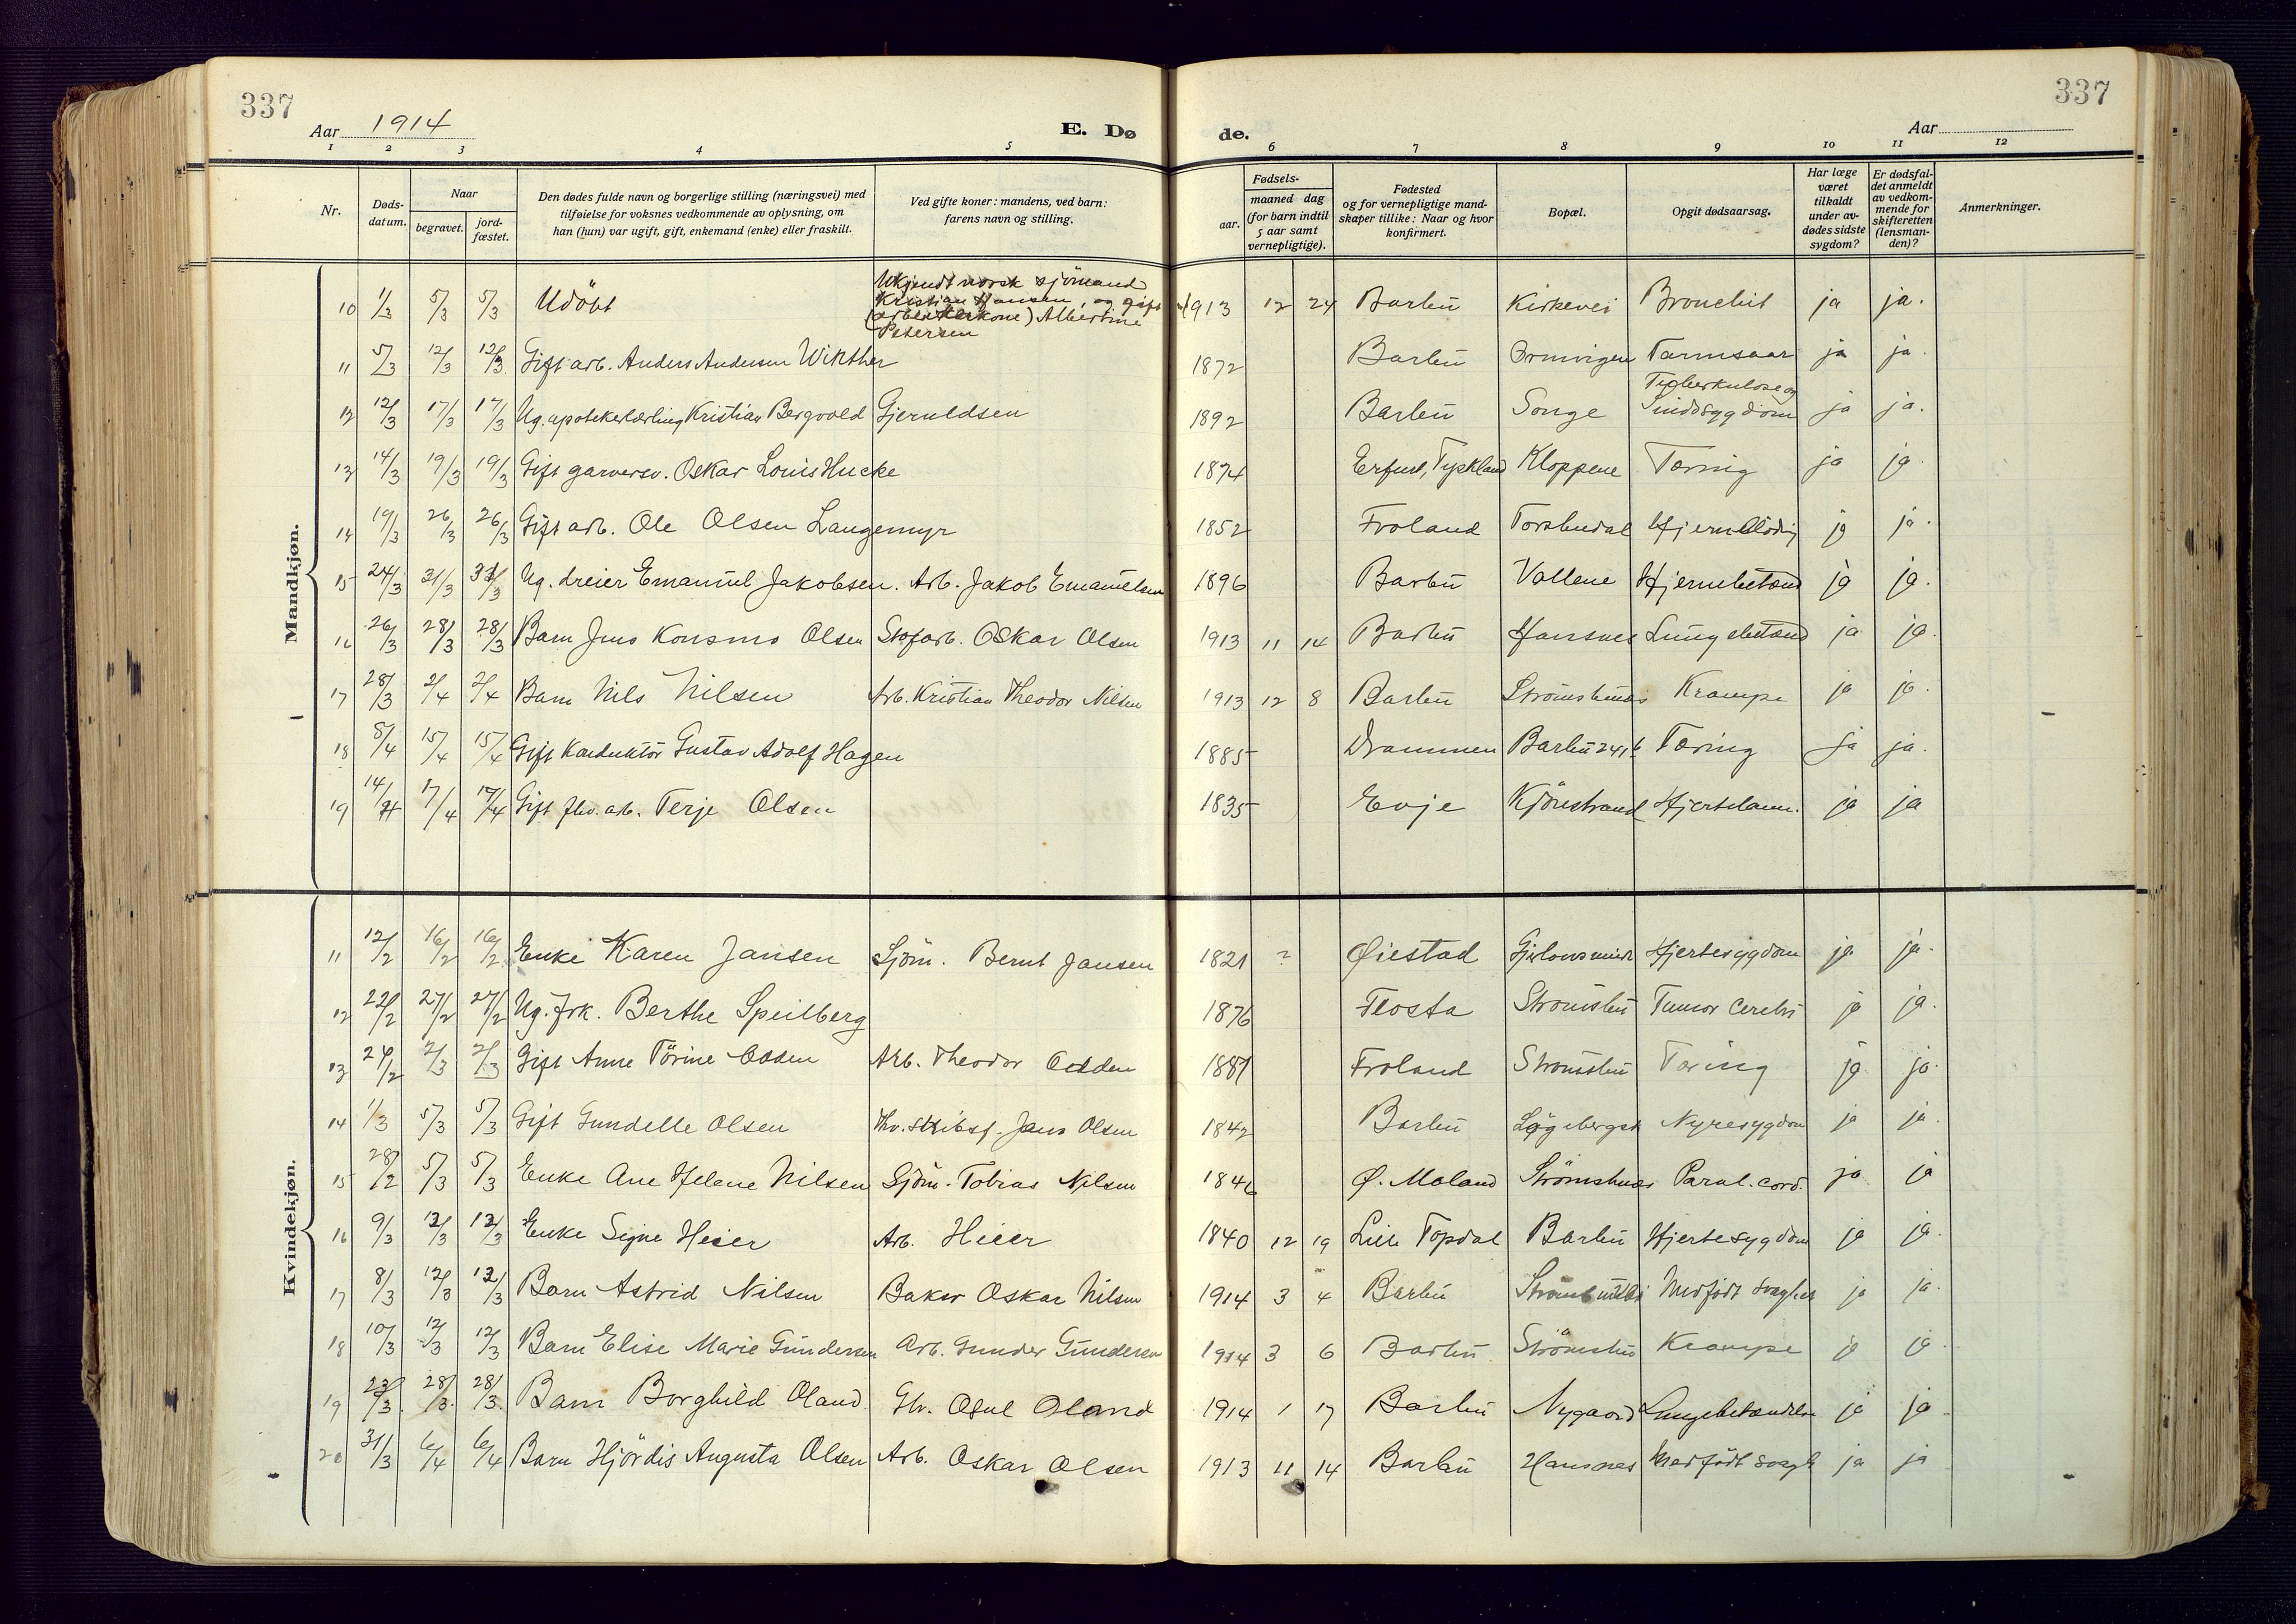 337
337
Aar 1914
E. Dø
de.
Aar
1 2 3 4 5 6 7 8 9 10 11 12
Nr.
Døds-
datum.
Naar
begravet.
jord-
fæstet.
Den dødes fulde navn og borgerlige stilling (næringsvei) med
tilføielse for voksnes vedkommende av oplysning, om
han (hun) var ugift, gift, enkemand (enke) eller fraskilt.
Ved gifte koner: mandens, ved barn:
farens navn og stilling.
Fødsels-
aar.
maaned dag
(for barn indtil
5 aar samt
vernepligtige).
Fødested
og for vernepligtige mand-
skaper tillike: Naar og hvor
konfirmert.
Bopæl.
Opgit dødsaarsag.
Har læge
været
tilkaldt
under av-
dødes sidste
sygdom?
Er dødsfal-
det anmeldt
av vedkom-
mende for
skifteretten
(lensman-
den)?
Anmerkninger.
Mandkjøn.
10 1/3 5/3 5/3 Udöbt Ukjendt norsk sjömand Kristian Hansen, og gift (arbeiderkone) Albertine Petersen 1913 12 24 Barbu Kirkevei Bronchit ja ja.
11 5/3 12/3 12/3 Gift arb. Anders Andersen Winther 1872 Barbu Tarmsaar ja ja.
12 12/3 17/3 17/3 Ug. apotekerlærling Kristian Bergvald Gjeruldsen 1892 Barbu Songe Tuberkulose og Sindssygdom ja ja.
13 14/3 19/3 19/3 Gift garversv. Oskar Louis Hucke 1874 Erfurt, Tyskland Kloppene Tæring ja ja.
14 19/3 26/3 26/3 Gift arb. Ole Olsen Langemyr 1852 Froland Torsbudal ja ja.
15 24/3 31/3 31/3 Ug. dreier Emanuel Jakobsen. Arb. Jakob Emanuelsen 1896 Barbu Vollene Hjernebetænd ja ja.
16 26/3 28/3 28/3 Barn Jens Konsmo Olsen Oskar Olsen 1913 11 14 Barbu Hansnes Lungebetænd ja ja.
17 28/3 2/4 2/4 Barn Nils Nilsen Arb. Kristian Theodor Nilsen 1913 12 8 Barbu Strömsbunes Krampe ja ja.
18 8/4 15/4 15/4 Gift Konduktör Gustav Adolf Hagen 1885 Drammen Barbu 241 b Tæring ja ja.
19 14/4 17/4 17/4 Gift fhv. arb. Terje Olsen 1835 Evje Kjönstrand Hjertelam. ja ja
Kvindekjøn.
11 12/2 16/2 16/2 Enke Karen Jansen Sjöm. Bernt Jansen 1821 ? Øiestad Hjertesygdom ja ja.
12 22/2 27/2 27/2 Ug. frk. Berthe Speilberg 1876 Flosta Strömsbu Tumor cerebri ja ja.
13 24/2 2/3 2/3 Gift Anne Törine Odden Arb. Theodor Odden 1881 Froland Strömsbu Tæring ja ja.
14 1/3 5/3 5/3 Gift Gundelle Olsen Jens Olsen 1842 Barbu Nyresygdom ja ja.
15 28/2 5/3 5/3 Enke Ane Helene Nilsen Sjöm. Tobias Nilsen 1846 Ø. Moland Strömsbunes Paral. cord. ja ja
16 9/3 12/3 12/3 Enke Signe Heier Arb. Heier 1840 12 19 Lille Topdal Barbu Hjertesygdom ja ja.
17 8/3 12/3 12/3 Barn Astrid Nilsen Baker Oskar Nilsen 1914 3 4 Barbu Medfödt svaghet ja ja.
18 10/3 12/3 12/3 Barn Elise Marie Gundersen Arb. Gunder Gundersen 1914 3 6 Barbu Strömsbu Krampe ja ja.
19 23/3 28/3 28/3 Barn Borghild Oland Osul Oland 1914 1 17 Barbu Nygaard Lungebetændelse ja ja
20 31/3 6/4 6/4 Barn Hjördis Augusta Olsen Arb. Oskar Olsen 1913 11 14 Barbu Hansnes Medfödt svagh ja ja